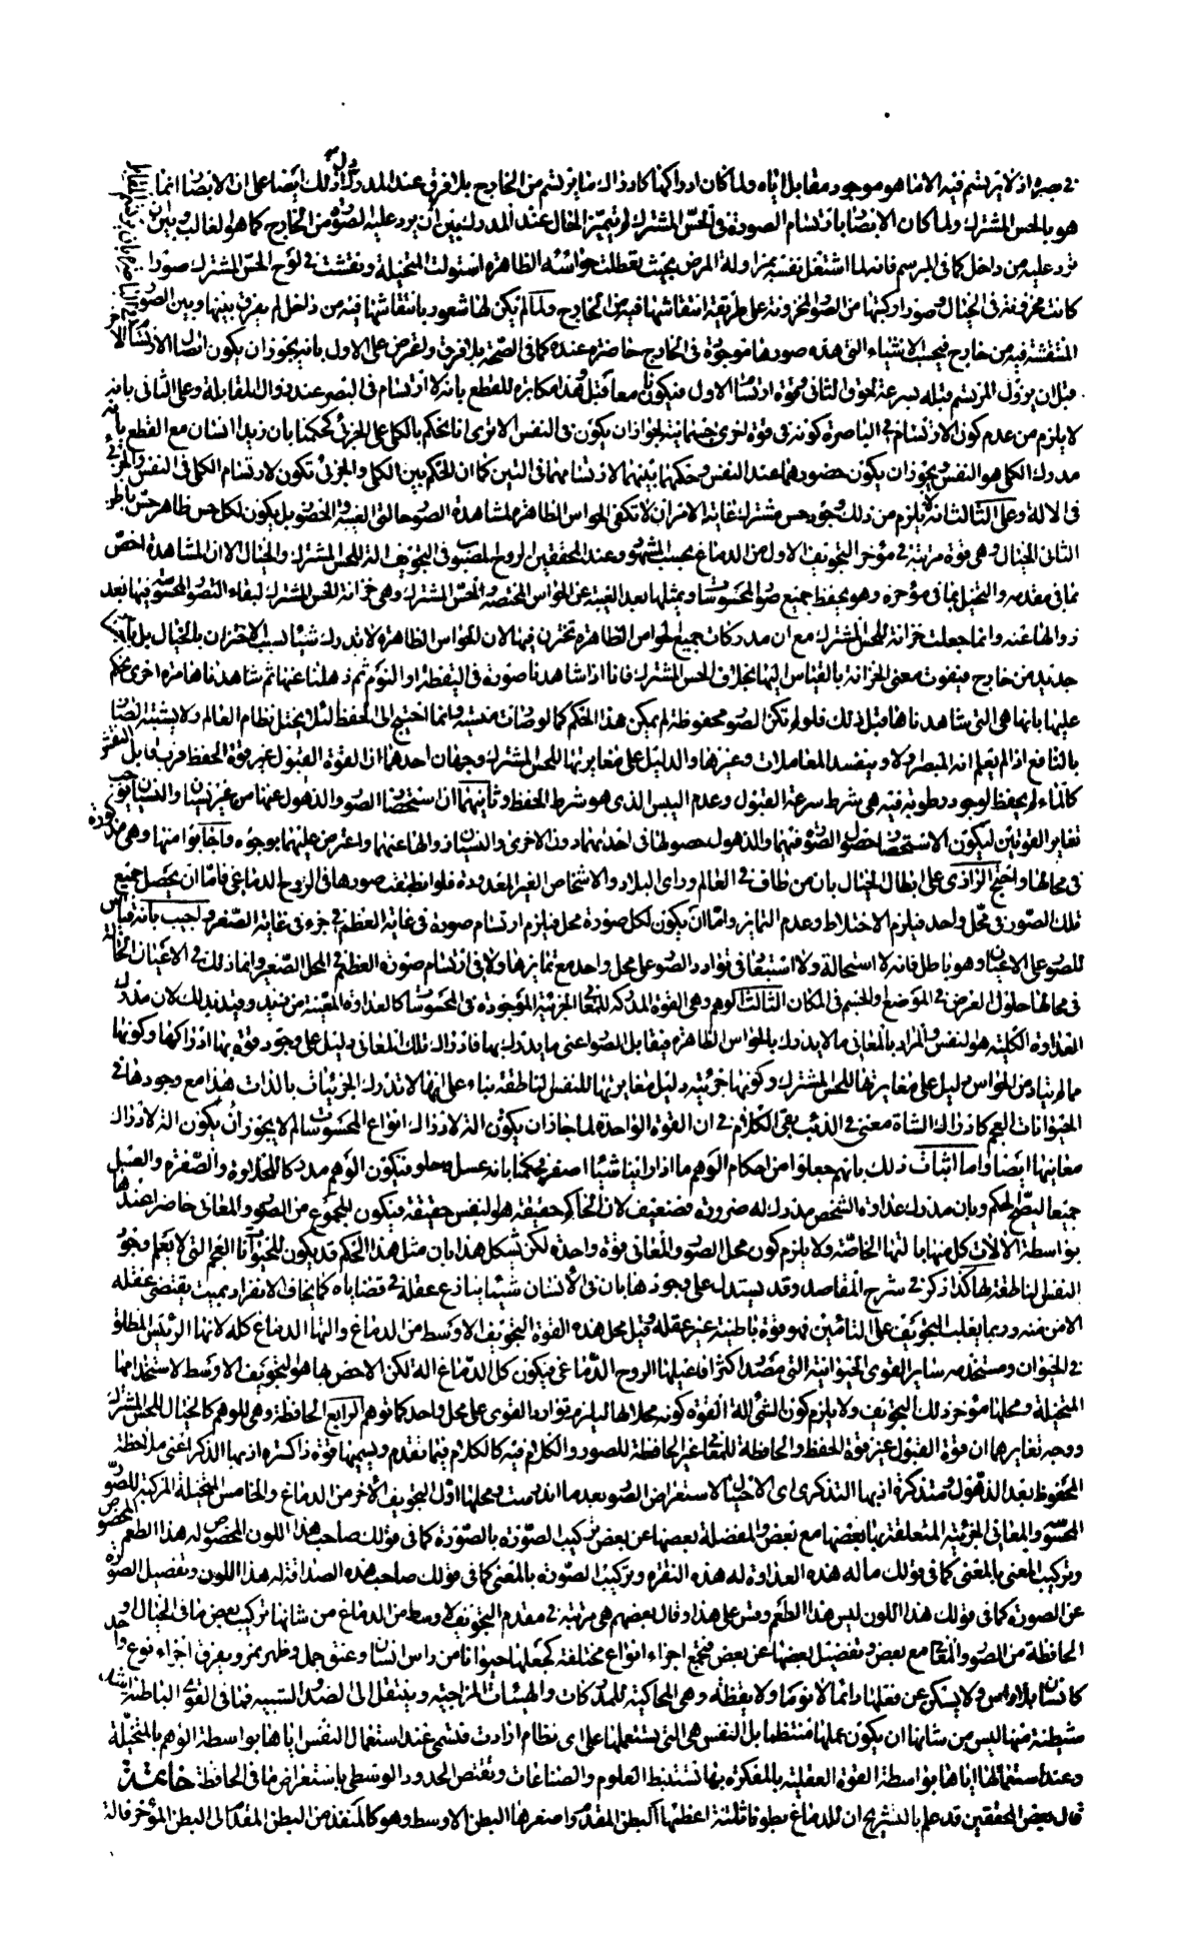 في غيره اذ لا يرتسم فيه الا ما هو موجود مقابل اياه ولما كان ادراكها كادراك ما يرتسم من الخارج بلا فرق عند المدرك دل ذلك ايضا على ان الابصار انما
هو بالحس المشترك ولما كان الابصار بارتسام الصورة في الحس المشترك لم يتميز الحال عند المدرك بين ان يرد عليه الصورة من الخارج كما هو الغالب وبين ان
ترد عليه من داخل كما في المبرسم فانه لما اشتغل نفسه بمزاولة المرض بحيث تعطلت حواسه الظاهرة استولت المتخيلة ونقشت في لوح الحس المشترك صورا
كانت مخزونة في الخيال وصورا ركبتها من الصور المخزونة على طريقة انتقاشها فيه من الخارج ولما لم يكن لها شعور بانتقاشها فيه من داخل لم يفرق بينها وبين الصور
المنتقشة فيه من خارج فيحسب الاشياء التي هذه صورها موجودة في الخارج حاضرة عنده كما في الصحة بلا فرق واعترض على الاول بانه يجوز ان يكون اتصال الارتسام
قبل ان يزول المرتسم قبله بسرعة لحوق الثاني وقوة ارتسام الاول فيكونان معا قيل هذا مكابرة للقطع بانه لا ارتسام في البصر عند زوال المقابلة وعلى الثاني بانه
لا يلزم من عدم كون الارتسام في الباصرة كونه في قوة اخرى جسمانية لجواز ان يكون في النفس الا ترى انا نحكم بالكلي على الجزئي كحكمنا بان زيدا انسان مع القطع بان
مدرك الكلي هو النفس ويجوز ان يكون حضورهما عند النفس وحكمها بينهما لارتسامهما في التين كما ان الحكم بين الكلي والجزئي تكون لارتسام الكلي في النفس والجزئي
في الالة وعلى الثالث انه لا يلزم من ذلك وجود حس مشترك غاية الامر ان لا تكفي الحواس الظاهرة لمشاهدة الصور حالتي الغيبة والحضور بل يكون لكل حس ظاهر حس باطن
الثاني الخيال وهي قوة مرتبة في مؤخر التجويف الاول من الدماغ بحسب المشهور وعند المحققين الروح المصبوب في التجويف الة للحس المشترك والخيال الا ان المشاهدة اخص
بما في مقدمه والتخيل بما في مؤخره وهو يحفظ جميع صور المحسوسات ويمثلها بعد الغيبة عن الحواس المختصة والحس المشترك وهي خزانة الحس المشترك لبقاء الصور المحسوسة فيها بعد
زوالها عنه وانما جعلت خزانة للحس المشترك مع ان مدركات جميع الحواس الظاهرة تختزن فيها لان الحواس الظاهرة لا تدرك شيئا بسبب الاختزان بالخيال بل باحساس
جديد من خارج فيفوت معنى الخزانة بالقياس اليها بخلاف الحس المشترك فانا اذا شاهدنا صورة في اليقظة او النوم ثم ذهلنا عنها ثم شاهدناها مرة اخرى نحكم
عليها بانها هي التي شاهدناها قبل ذلك فلو لم تكن الصور محفوظة لم يمكن هذا الحكم كما لو صارت منسية وانما احتيج الى الحفظ لئلا يختل نظام العالم ولا يشتبه الضار
بالنافع اذا لم يعلم انه المبصر اولا ويفسد المعاملات وغيرها والدليل على مغايرتها للحس المشترك وجهان احدهما ان القوة القبول غير قوة الحفظ فرب قابل النقش
كالماء لم يحفظ لوجود رطوبة فيه هي شرط سرعة القبول وعدم اليبس الذي هو شرط الحفظ وثانيهما ان استحضار الصور والذهول عنها من غير نسيان والنسيان يوجب
تغاير القوتين ليكون الاستحضار حصول الصورة فيهما والذهول حصولها في احديهما دون الاخرى والنسيان زوالها عنهما واعترض عليهما بوجوه واجابوا منها وهي مذكورة
في محالها واحتج الرازي على ابطال الخيال بان من طاف في العالم وراى البلاد والاشخاص الغير المعدودة فلو انطبعت صورها في الروح الدماغي فاما ان يحصل جميع
تلك الصور في محل واحد فيلزم الاختلاط وعدم التمايز واما ان يكون لكل صورة محل فيلزم ارتسام صورة في غاية العظم في جزء في غاية الصغر واجيب بانه قياس
للصور على الاعيان وهو باطل فانه لا استحالة ولا استبعاد في توارد الصور على محل واحد مع تمايزها ولا في ارتسام صورة العظيم في المحل الصغير وانما ذلك في الاعيان الحالة
في محالها حلول العرض في الموضوع والجسم في المكان الثالث الوهم وهي القوة المدركة للمعاني الجزئية الموجودة في المحسوسات كالعداوة المعينة من زيد وقيد بذلك لان مدرك
العداوة الكلية هو النفس والمراد بالمعاني ما لا يدرك بالحواس الظاهرة فيقابل الصور اعني ما يدرك بها فادراك تلك المعاني دليل على وجود قوة بها ادراكها وكونها
مما لم يتاد من الحواس دليل على مغايرتها للحس المشترك وكونها جزئية دليل مغايرتها للنفس الناطقة بناء على انها لا تدرك الجزئيات بالذات هذا مع وجودها في
الحيوانات العجم كادراك الشاة معنى في الذئب بقي الكلام في ان القوة الواحدة لما جاز ان يكون الة لادراك انواع المحسوسات لم لا يجوز ان يكون الة لادراك
معانيها ايضا واما اثبات ذلك بانهم جعلوا من احكام الوهم ما اذا راينا شيئا اصفر فحكمنا بانه عسل وحلو فيكون الوهم مدركا للحلاوة والصفرة والعسل
جميعا ليصح الحكم وبان مدرك عداوة الشخص مدرك له ضرورة فضعيف لان الحاكم حقيقة هو النفس حقيقة فيكون المجموع من الصور والمعاني حاضرا عندها
بواسطة الالات كل منها بالتها الخاصة ولا يلزم كون محل الصور والمعاني قوة واحدة لكن تشكل هذا بان مثل هذا الحكم قد يكون للحيوانات العجم التي لا يعلم وجود
النفس الناطقة لها كذا ذكر في شرح المقاصد وقد يستدل على وجودها بان في الانسان شيئا ينازع عقله في قضاياه كما يخاف الانفراد بميت يقتضي عقله
الامن منه وربما يغلب التخويف على التامين فهو قوة باطنية غير عقله وقيل محل هذه القوة التجويف الاوسط من الدماغ والتها الدماغ كله لانها الرئيس المطلق
في الحيوان ومستخدمه ساير القوى الحيوانية التي مصدر اكثر افاعيلها الروح الدماغي فيكون كل الدماغ الة لكن الاخص بها هو التجويف الاوسط لاستخدامها
المتخيلة ومحلها مؤخر ذلك التجويف ولا يلزم كون الشئ الة القوة كونه محلا لها ليلزم توارد القوى على محل واحد كما توهم الرابع الحافظة وهي للوهم كالخيال للحس المشترك
ووجه تغايرهما ان قوة القبول غير قوة الحفظ والحافظة للمعاني غير الحافظة للصور والكلام فيه كالكلام فيما تقدم ويسميها قوة ذاكرة اذ بها الذكر اعني ملاحظة
المحفوظ بعد الذهول ومتذكرة اذ بها التذكر اى الاحتيال لاستعراض الصور بعد ما اندرست ومحلها اول التجويف الاخر من الدماغ والخامس المتخيلة المركبة للصور
المحسوسة والمعاني الجزئية المتعلقة بها بعضها مع بعض والمفصلة بعضها عن بعض تركيب الصورة بالصورة كما في قولك صاحب هذا اللون المخصوص له هذا الطعم المخصوص
وتركيب المعنى بالمعنى كما في قولك ما له هذه العداوة له هذه النفرة وتركيب الصورة بالمعنى كما في قولك صاحب هذه الصداقة له هذا اللون وتفصيل الصورة
عن الصورة كما في قولك هذا اللون ليس هذا الطعم وقس على هذا وقال بعضهم هي مرتبة في مقدم التجويف الاوسط من الدماغ من شانها تركيب بعض ما في الخيال او
الحافظة من الصور والمعاني مع بعض وتفصيل بعضها عن بعض فتجمع اجزاء انواع مختلفة كجعلها حيوانا من راس انسان وعنق جمل وظهر نمر ويفرق اجزاء نوع واحد
كانسان بلا راس ولا يسكن عن فعلها دائما لا نوما ولا يقظة وهي المحاكية للمدركات والهيئات المزاجية وينتقل الى الضد والشبيه فما في القوى الباطنة اشد
شيطنة منها ليس من شانها ان يكون عملها منتظما بل النفس هي التي يستعملها على اى نظام ارادت فتسمى عند استعمال النفس اياها بواسطة الوهم بالمتخيلة
وعند استعمالها اياها بواسطة القوة العقلية بالمفكرة بها تستنبط العلوم والصناعات وتقتنص الحدود الوسطى باستعراض ما في الحافظة خاتمة
قال بعض المحققين قد علم بالتشريح ان للدماغ بطونا ثلثة اعظمها البطن المقدم واصغرها البطن الاوسط وهو كالمنفذ من البطن المقدم الى البطن المؤخر فالة